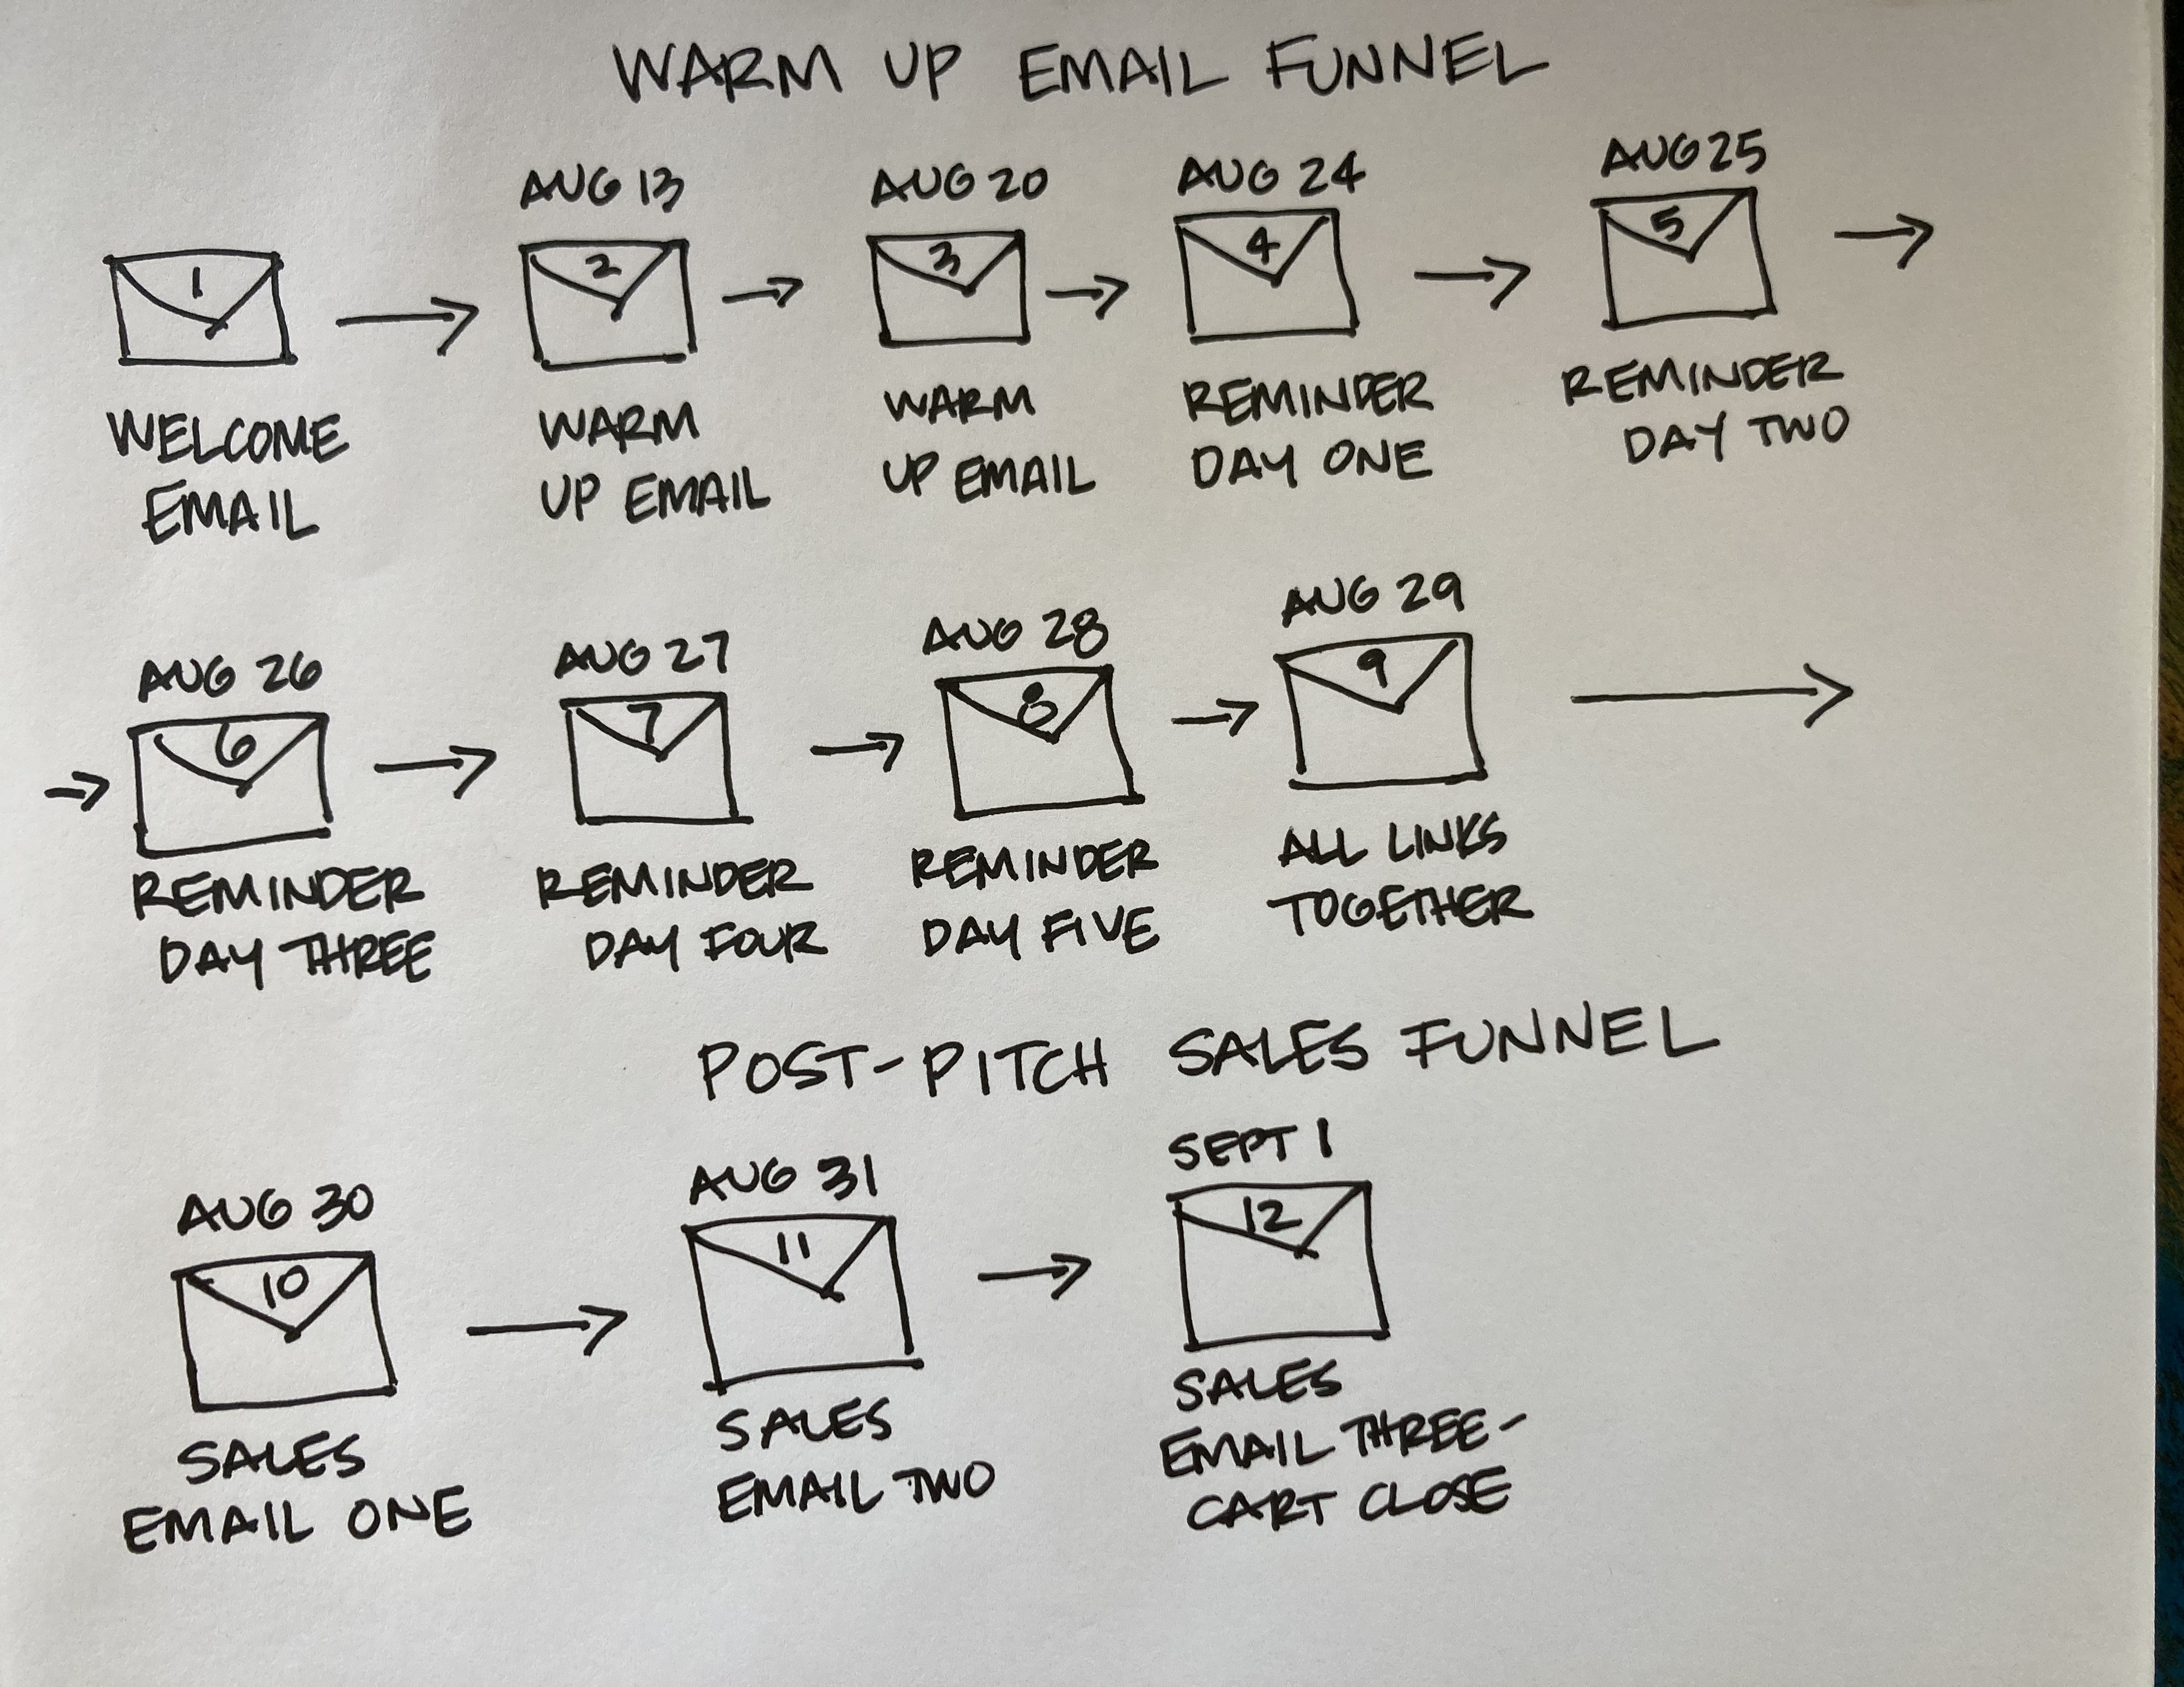 WARM UP EMAIL FUNNEL
1
WELCOME
EMAIL
AUG 13
2
WARM
UP EMAIL
AUG 20
3
WARM
UP EMAIL
AUG 24
4
REMINDER
DAY ONE
AUG 25
5
REMINDER
DAY TWO
AUG 26
6
REMINDER
DAY THREE
AUG 27
7
REMINDER
DAY FOUR
AUG 28
8
REMINDER
DAY FIVE
AUG 29
9
ALL LINKS
TOGETHER
POST-PITCH SALES FUNNEL
AUG 30
10
SALES
EMAIL ONE
AUG 31
11
SALES
EMAIL TWO
SEPT 1
12
SALES
EMAIL THREE-
CART CLOSE